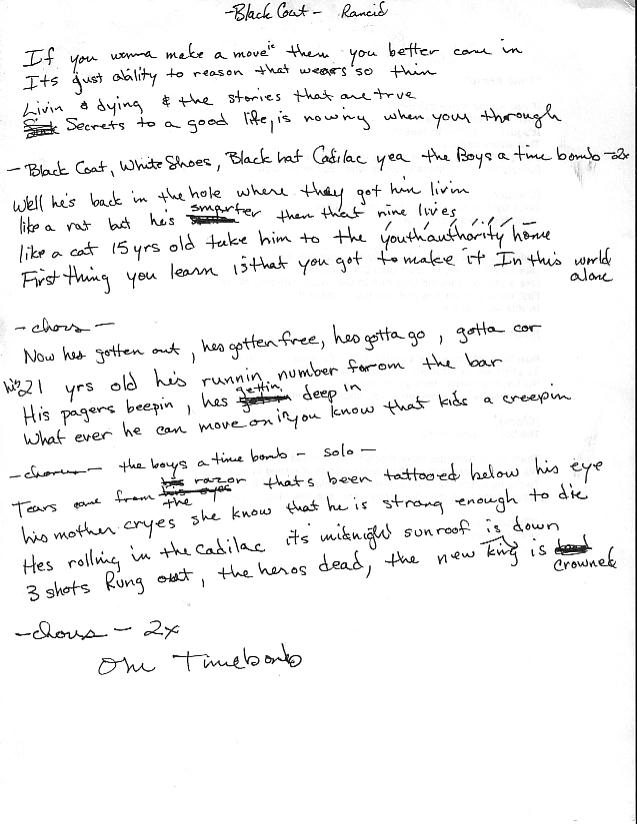 -Black Coat- Rancid
If you wanna make a move then you better come in
Its just ability to reason that wears so thin
Livin & dying & the stories that are true
Secrets to a good life, is nowing when your through
- Black Coat, White Shoes, Black hat Cadilac yea the Boys a time bomb -2x
Well he's back in the hole where they got him livin
like a rat but he's smarter then that nine lives
like a cat 15 yrs old take him to the youth authority home
First thing you learn is that you got to make it In this world
alone
- chors -
Now hes gotten out, hes gotten free, hes gotta go, gotta car
hes 21 yrs old he's runnin number from the bar
His pagers beepin, hes gettin deep in
What ever he can move on in you know that kids a creepin
- the boys a time bomb - solo -
Tears came from the razor thats been tattooed below his eye
his mother cryes she know that he is strong enough to die
Hes rolling in the Cadilac its midnight sunroof is down
3 shots Rung out, the heros dead, the new king is crowned
- chours - 2x
Timebomb